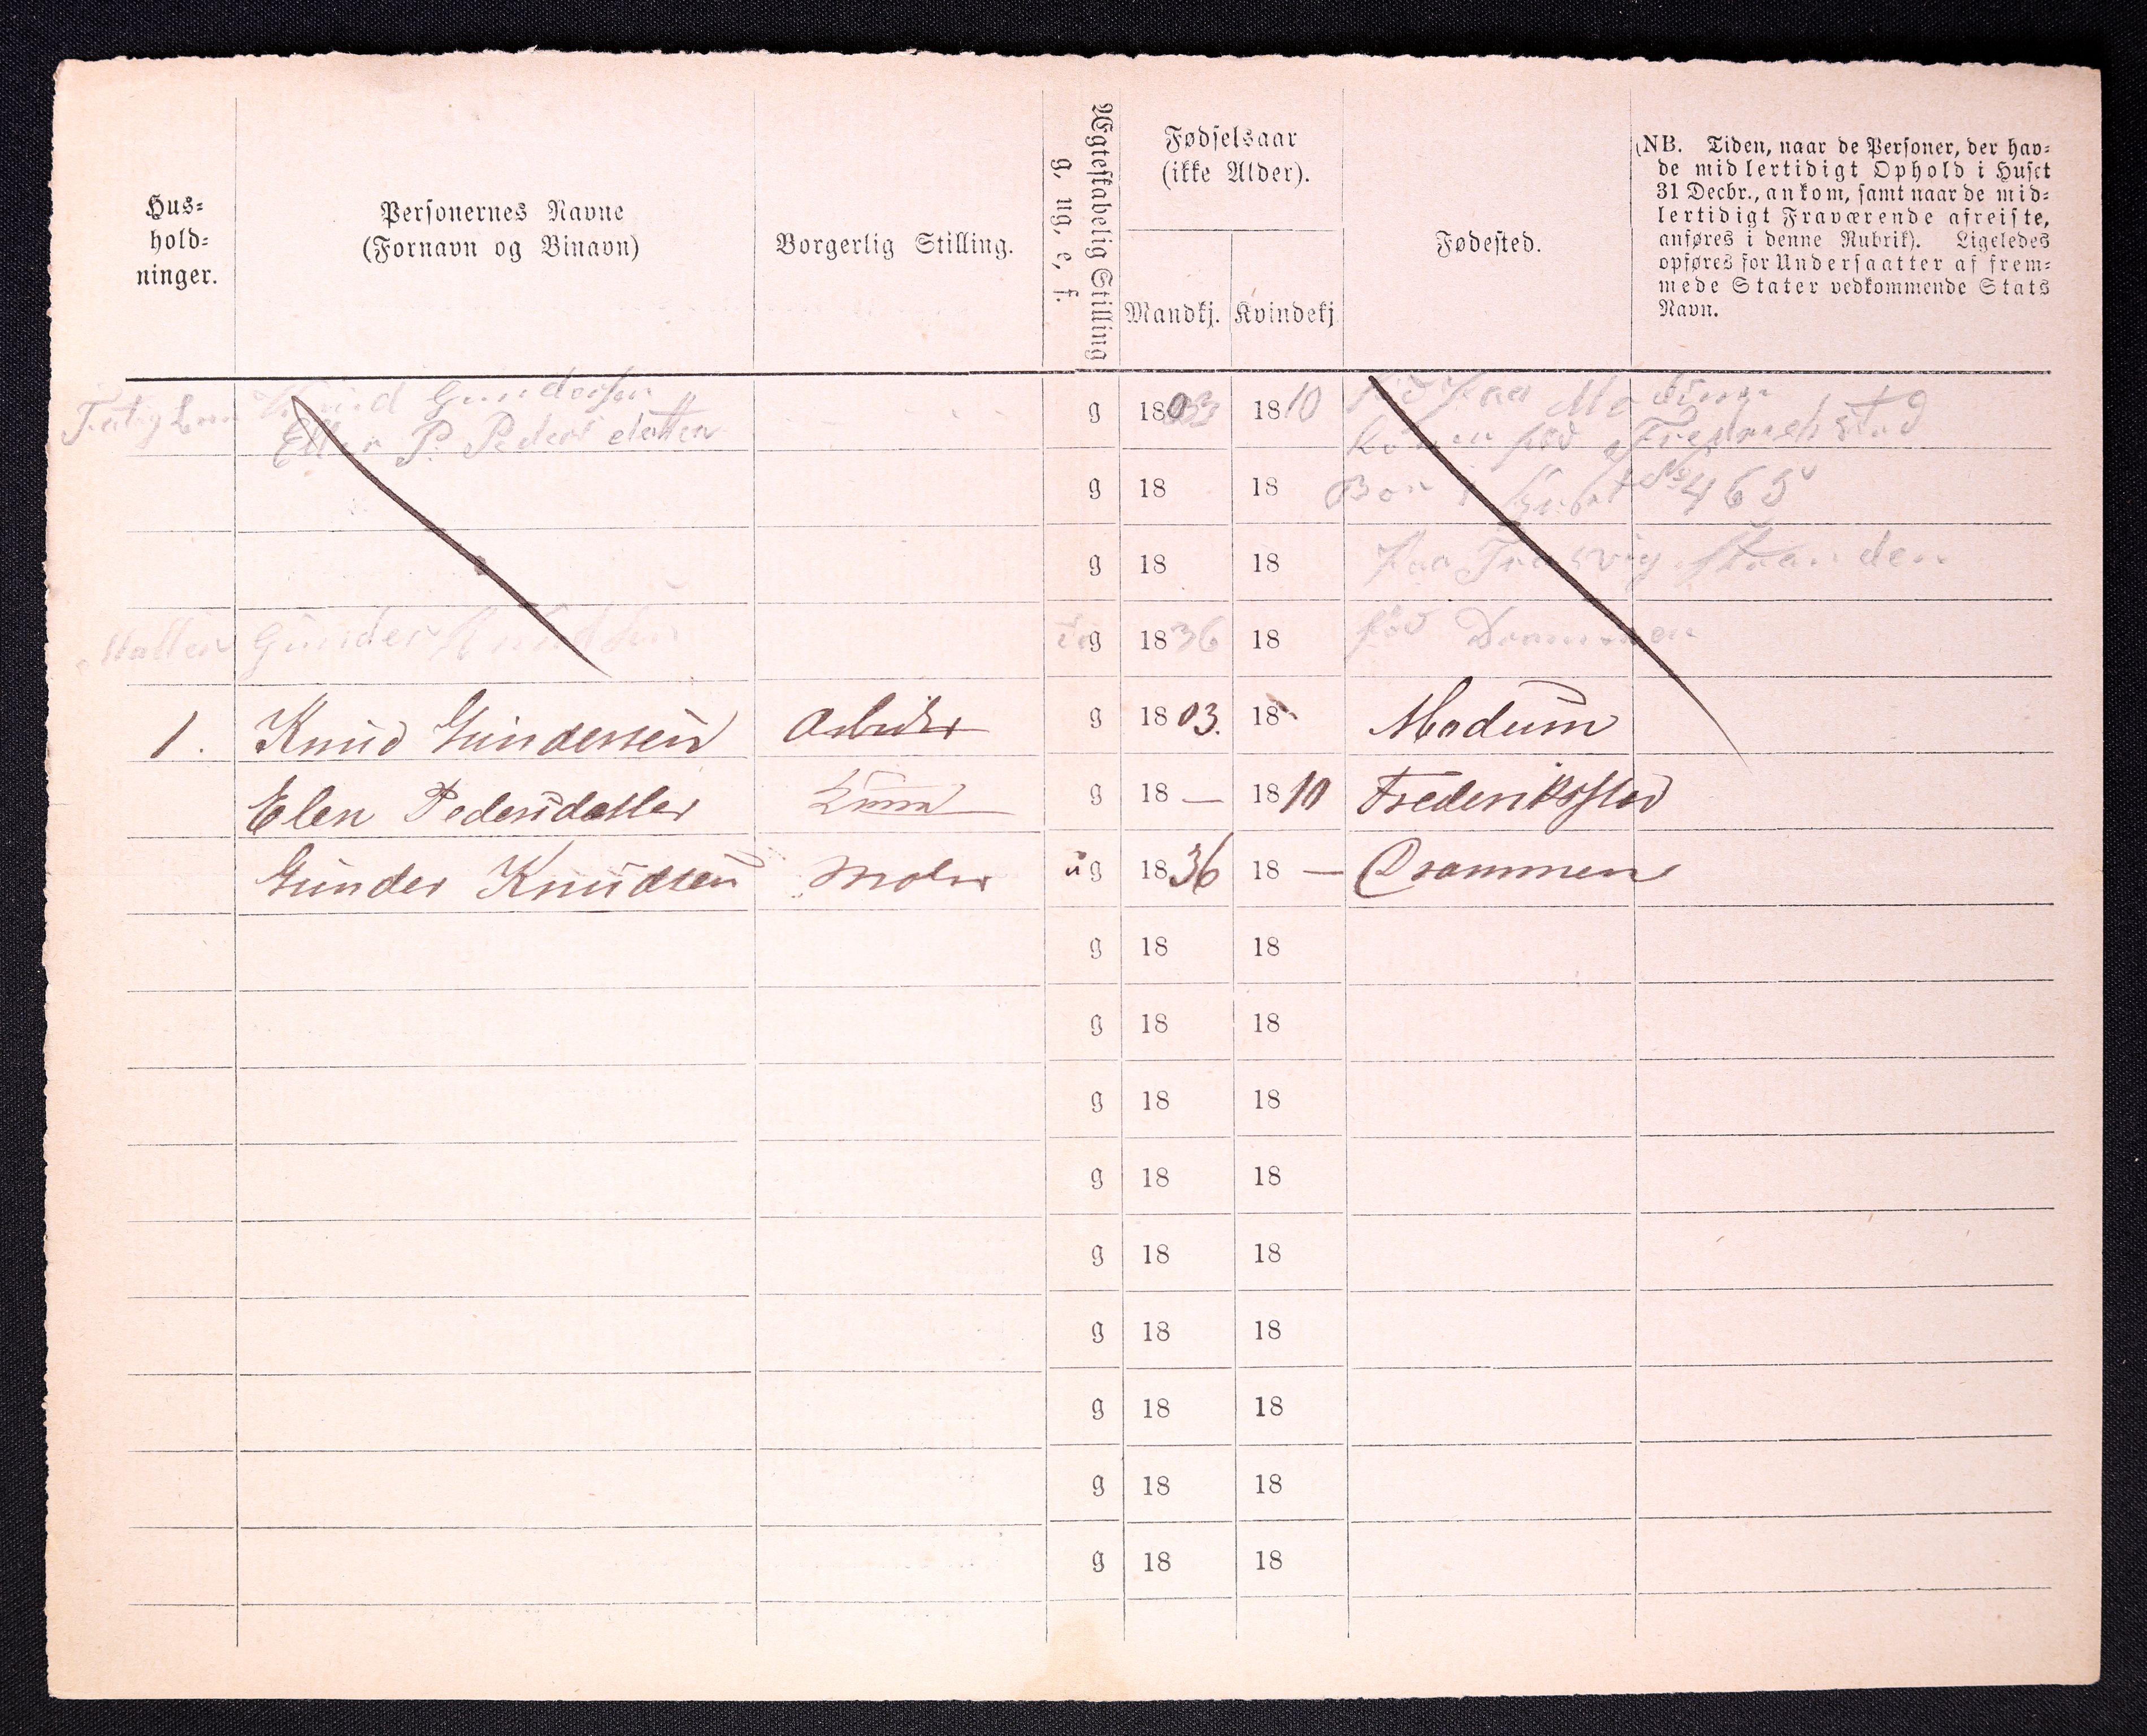 Hus-
hold-
ninger.
Personernes Navne
(Fornavn og Binavn)
Borgerlig Stilling.
Ægteskabelig Stilling
g, ug, e, f.
Fødselsaar
(ikke Alder).
Mandkj. Kvindekj.
Fødested.
(NB. Tiden, naar de Personer, der hav-
de midlertidigt Ophold i Huset
31 Decbr., ankom, samt naar de mid-
lertidigt Fraværende afreiste,
anføres i denne Rubrik). Ligeledes
opføres for Undersaatter af frem-
mede Stater vedkommende Stats
Navn.
Knud Gundersen g 1803 1810 fød paa Modum
P. Pedersdatter fød
g 18 18 Boer i No 465
g 18 18 paa
Gunder Knudsen ug 1836 18 fød Drammen
1. Knud Gundersen Arbeider g 1803. 18 Modum
Elen Pedersdatter Kone g 18 — 1810 Frederikstad
Gunder Knudsen Maler ug 1836 18 — Drammen
g 18 18
g 18 18
g 18 18
g 18 18
g 18 18
g 18 18
g 18 18
g 18 18
g 18 18